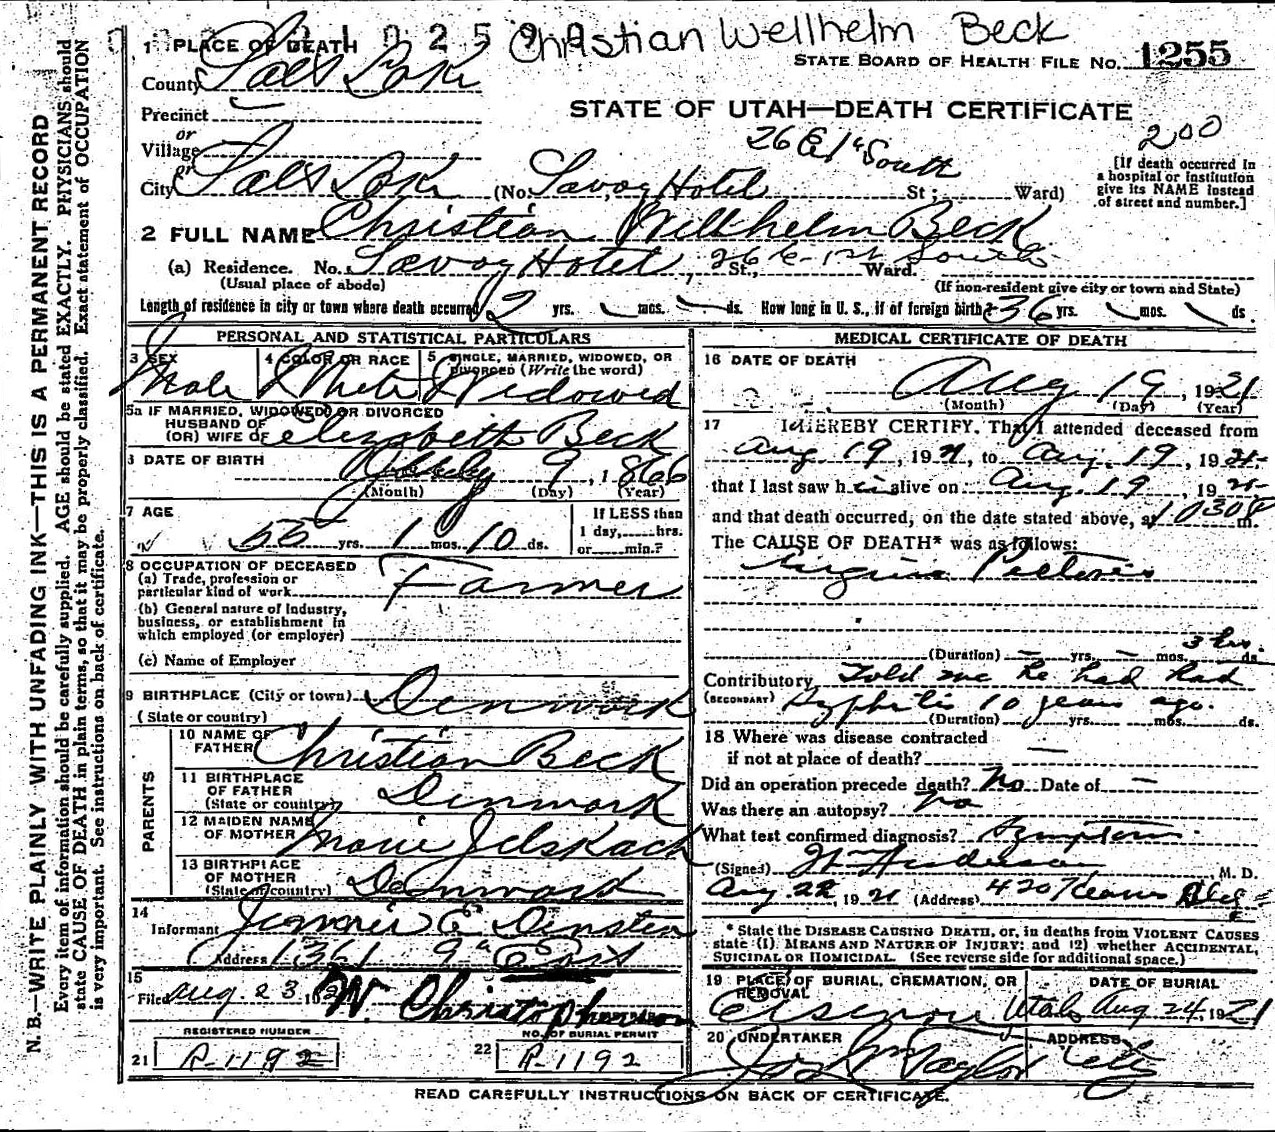 Christian Wellhelm Beck
1 PLACE OF DEATH
STATE BOARD OF HEALTH FILE No. 1255
County Salt Lake
STATE OF UTAH—DEATH CERTIFICATE
Precinct
or
Village
26 E 1st South
200
[If death occurred in
a hospital or institution
give its NAME instead
of street and number.]
or
City Salt Lake (No. Savoy Hotel St; Ward)
2 FULL NAME Christian Wellhelm Beck
(a) Residence. No. Savoy Hotel, 26 E-1st South St., Ward.
(Usual place of abode) (If non-resident give city or town and State)
Length of residence in city or town where death occurred 2 yrs. mos. ds. How long in U. S., if of foreign birth? 36 yrs. mos. ds.
PERSONAL AND STATISTICAL PARTICULARS
3 SEX 4 COLOR OR RACE 5 SINGLE, MARRIED, WIDOWED, OR
DIVORCED (Write the word)
Male White Widowed
5a IF MARRIED, WIDOWED, OR DIVORCED
HUSBAND OF
(OR) WIFE OF Elizabeth Beck
DATE OF BIRTH July 9, 1866
(Month) (Day) (Year)
7 AGE If LESS than
1 day,......hrs.
55 yrs. 1 mos. 10 ds. or......min.?
8 OCCUPATION OF DECEASED
(a) Trade, profession or
particular kind of work Farmer
(b) General nature of Industry,
business, or establishment in
which employed (or employer)
(c) Name of Employer
9 BIRTHPLACE (City or town) Denmark
(State or country)
PARENTS
10 NAME OF
FATHER Christian Beck
11 BIRTHPLACE
OF FATHER
(State or country) Denmark
12 MAIDEN NAME
OF MOTHER Marie
13 BIRTHPLACE
OF MOTHER
(State or country) Denmark
14
Informant Jennie E.
Address 1361 9" East
15
Filed Aug. 23 1921
REGISTERED NUMBER NO. OF BURIAL PERMIT
21 R-1192 22 R-1192
MEDICAL CERTIFICATE OF DEATH
16 DATE OF DEATH
Aug 19, 1921
(Month) (Day) (Year)
17 I HEREBY CERTIFY, That I attended deceased from
Aug 19, 1921, to Aug. 19, 1921
that I last saw him alive on Aug. 19, 1921
and that death occurred, on the date stated above, at 1030P m.
The CAUSE OF DEATH* was as follows:
Angina Pectoris
3 hrs.
(Duration) — yrs. — mos. ds.
Contributory Told me he had had
(SECONDARY) Syphilis 10 years ago.
(Duration) yrs. mos. ds.
18 Where was disease contracted
if not at place of death? —
Did an operation precede death? No Date of —
Was there an autopsy? No
What test confirmed diagnosis? Symptoms
(Signed) Anderson M. D.
Aug 22, 1921 (Address) 420 Kearns Bldg
* State the DISEASE CAUSING DEATH, or, in deaths from VIOLENT CAUSES
state (1) MEANS AND NATURE OF INJURY; and (2) whether ACCIDENTAL,
SUICIDAL OR HOMICIDAL. (See reverse side for additional space.)
19 PLACE OF BURIAL, CREMATION, OR
REMOVAL DATE OF BURIAL
Elsinore Utah Aug 24, 1921
20 UNDERTAKER ADDRESS
Jos Wm Taylor City
READ CAREFULLY INSTRUCTIONS ON BACK OF CERTIFICATE.
N. B.—WRITE PLAINLY WITH UNFADING INK—THIS IS A PERMANENT RECORD
Every item of information should be carefully supplied. AGE should be stated EXACTLY. PHYSICIANS should
state CAUSE OF DEATH in plain terms, so that it may be properly classified. Exact statement of OCCUPATION
is very important. See instructions on back of certificate.